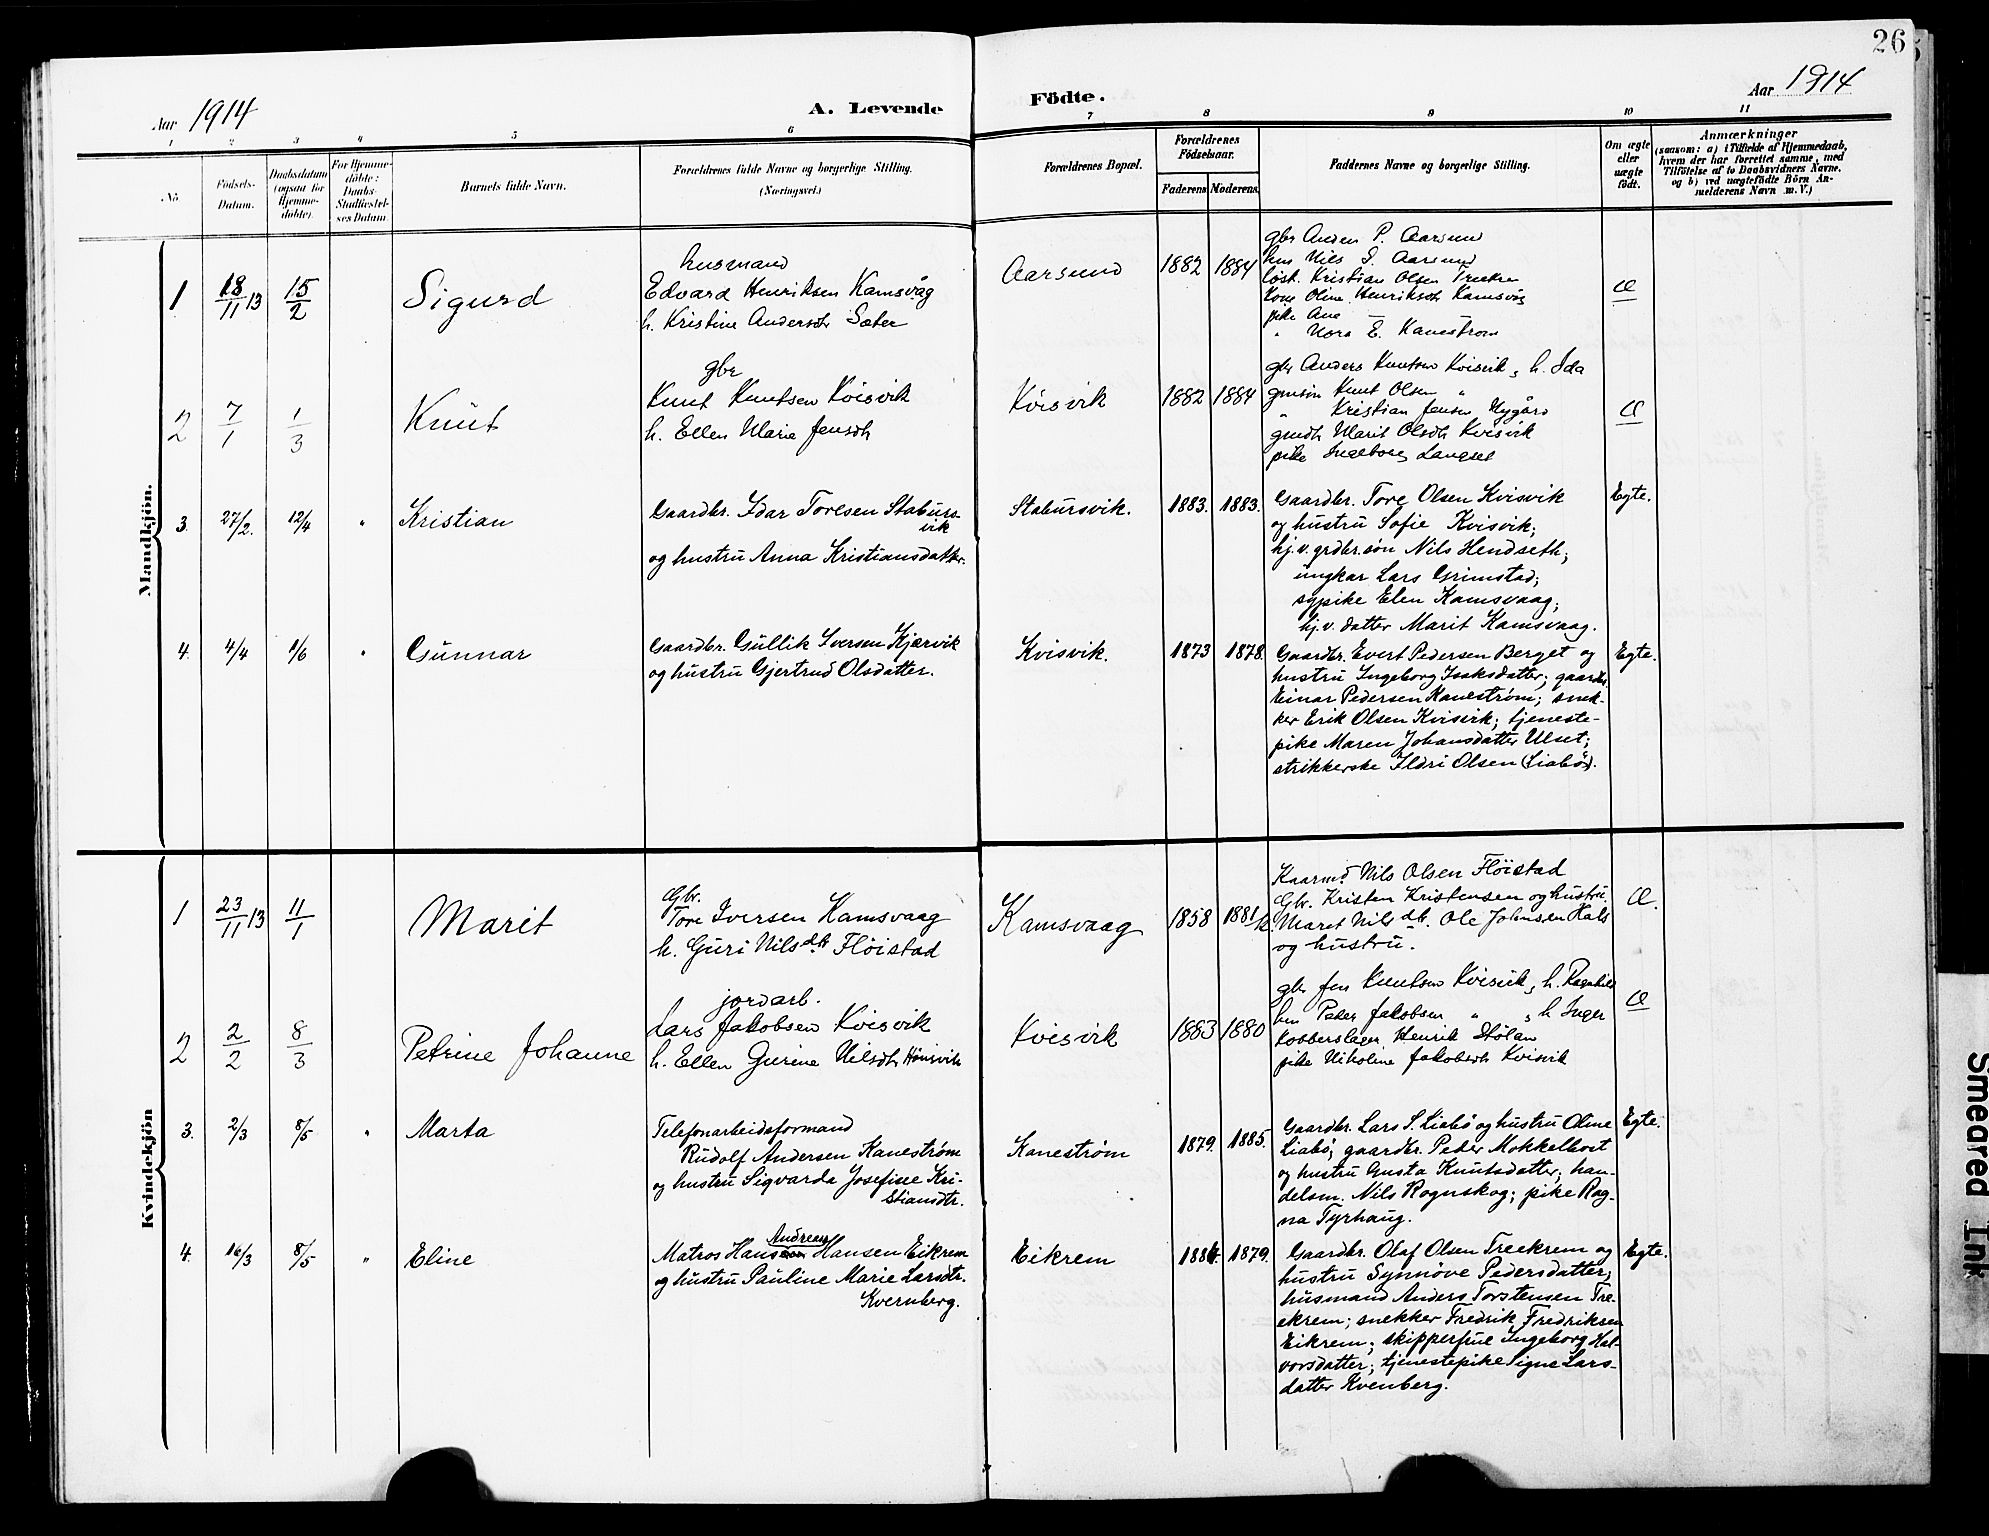 26
Aar 1914
A. Levende
Födte.
Aar 1914
1
2
3
4
5
6
7
8
9
10
11
No
Födsels-
Datum.
Daabsdatum
(ogsaa for
Hjemme-
döbte).
For Hjemme-
döbte:
Daabs-
Stadfæstel-
ses Datum.
Barnets fulde Navn.
Forældrenes fulde Navne og borgerlige Stilling.
(Næringsvei.)
Forældrenes Bopæl.
Forældrenes
Födselsaar.
Faderens
Moderens.
Faddernes Navne og borgerlige Stilling.
Om ægte
eller
uægte
födt.
Anmærkninger
(saasom: a) i Tilfælde af Hjemmedaab,
hvem der har forrettet samme, med
Tilföielse af to Daabsvidners Navne,
og b) ved uægtefödte Börn An-
melderens Navn m. V.)
Mandkjön.
1
18/11 13
15/2
Sigurd
husmand
Edvard Henriksen Kamsvåg
h. Kristine Andersdtr Sæter
Aarsund
1882
1884
gbr Anders P. Aarsund
hm Nils S. Aarsund
løst. Kristian Olsen
Kone Oline Henriksdtr Kamsvåg
pike Ane
" Nora E. Kanestrøm
2
7/1
1/3
Knut
gbr
Knut Knutsen Kvisvik
h. Ellen Marie Jensdtr
Kvisvik
1882
1884
gbr Anders Knutsen Kvisvik, h. Ida
gmsön Knut Olsen "
" Kristian Jensen Nygård
gmdtr Marit Olsdtr Kvisvik
pike Ingeborg Langset
3.
27/2.
12/4
"
Kristian
Gaardbr. Idar Toresen Stabursvik
og hustru Anna Kristiansdatter.
Stabursvik.
1883.
1883.
Gaardbr. Tore Olsen Kvisvik
og hustru Sofie Kvisvik;
hj.v. grdbr.søn Nils Hendseth;
ungkar Lars Grimstad;
sypike Elen Kamsvaag;
hj.v. datter Marit Kamsvaag.
Egte.
4.
4/4
1/6
"
Gunnar
Gaardbr. Gullik Iversen Kjærvik
og hustru Gjertrud Olsdatter.
Kvisvik.
1873
1878.
Gaardbr. Evert Pedersen Berget og
hustru Ingeborg Isaksdatter; gaardbr.
Einar Pedersen Kanestrøm; snek-
ker Erik Olsen Kvisvik; tjeneste-
pike Maren Johansdatter Ulset;
strikkerske Ildri Olsen (Liabø).
Egte.
Kvindekjön
1
23/11 13
11/1
Marit
Gbr.
Tore Iversen Kamsvaag
h. Guri Nilsdtr Flöistad
Kamsvaag
1858
1881
Kaarmd Nils Olsen Flöistad
Gbr. Kristen Kristensen og hustru
Maret Nilsdtr. Ole Johnsen Hals
og hustru.
2
2/2
8/3
Petrine Johanne
jordarb.
Lars Jakobsen Kvisvik
h. Ellen Gurine Nilsdtr Hönsvik
Kvisvik
1883
1880
gbr Jens Knutsen Kvisvik, h. Ragnhild
hm Peter Jakobsen " , h Inger
Kobberslager Henrik Stölan
pike Nikoline Jakobsdtr Kvisvik
3.
2/3
8/5
"
Marta
Telefonarbeidsformand
Rudolf Andersen Kanestrøm
og hustru Sigvarda Josefine Kri-
stiansdtr.
Kanestrøm
1879.
1885.
Gaardbr. Lars S. Liabø og hustru Oline
Liabø; gaardbr. Peder Mokkelbost
og hustru Gusta Knutsdatter; han-
delsm. Nils Rognskog; pike Rag-
na Tyrhaug.
Egte.
4.
16/3
8/5
"
Eline
Andreas
Matros Hans Hansen Eikrem
og hustru Pauline Marie Larsdtr.
Kvernberg.
Eikrem
1884.
1879.
Gaardbr. Olaf Olsen Treekrem og
hustru Synnöve Pedersdatter;
husmand Anders Torstensen Tre-
ekrem; snekker Fredrik Fredriksen
Eikrem; skipperfrue Ingeborg Hal-
vorsdatter; tjenestepike Signe Lars-
datter Kvenberg.
Egte.
Smeared Ink